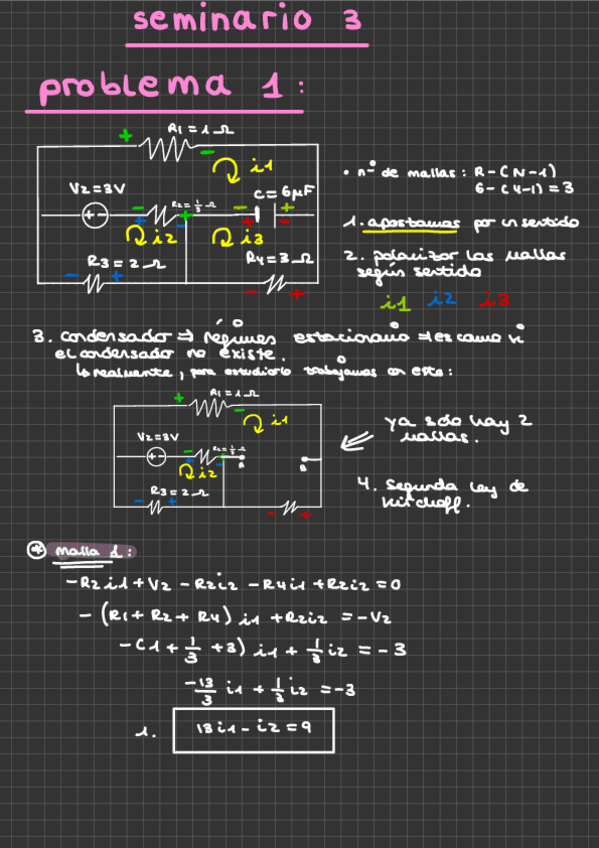 seminario 3
problema 1:
R1 = 1 Ω
i1
V2 = 3V
R2 = 1/3 Ω
C = 6 μF
i2
i3
R3 = 2 Ω
R4 = 3 Ω
• nº de mallas: R - (N - 1)
6 - (4 - 1) = 3
1. apostamos por un sentido
2. polarizar las mallas
según sentido
i1 i2 i3
3. condensador ⇒ régimen estacionario ⇒ es como si
el condensador no existe.
↳ realmente, para estudiarlo trabajamos con esto:
R1 = 1 Ω
i1
V2 = 3V
R2 = 1/3 Ω
A
B
i2
R3 = 2 Ω
ya solo hay 2
mallas.
4. Segunda ley de
Kirchoff.
* malla 1:
-R2i1 + V2 - R2i2 - R4i1 + R2i2 = 0
- (R1 + R2 + R4) i1 + R2i2 = -V2
-(1 + 1/3 + 3) i1 + 1/3 i2 = -3
-13/3 i1 + 1/3 i2 = -3
1. 13i1 - i2 = 9